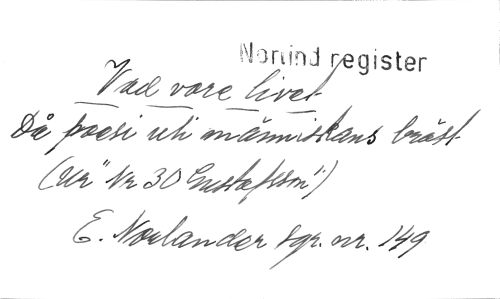 Norlind register
Vad vore livet
Då poesi uti människans bröst
(ur "Nr 30 Gustafsson")
E. Norlander sgr. nr. 149